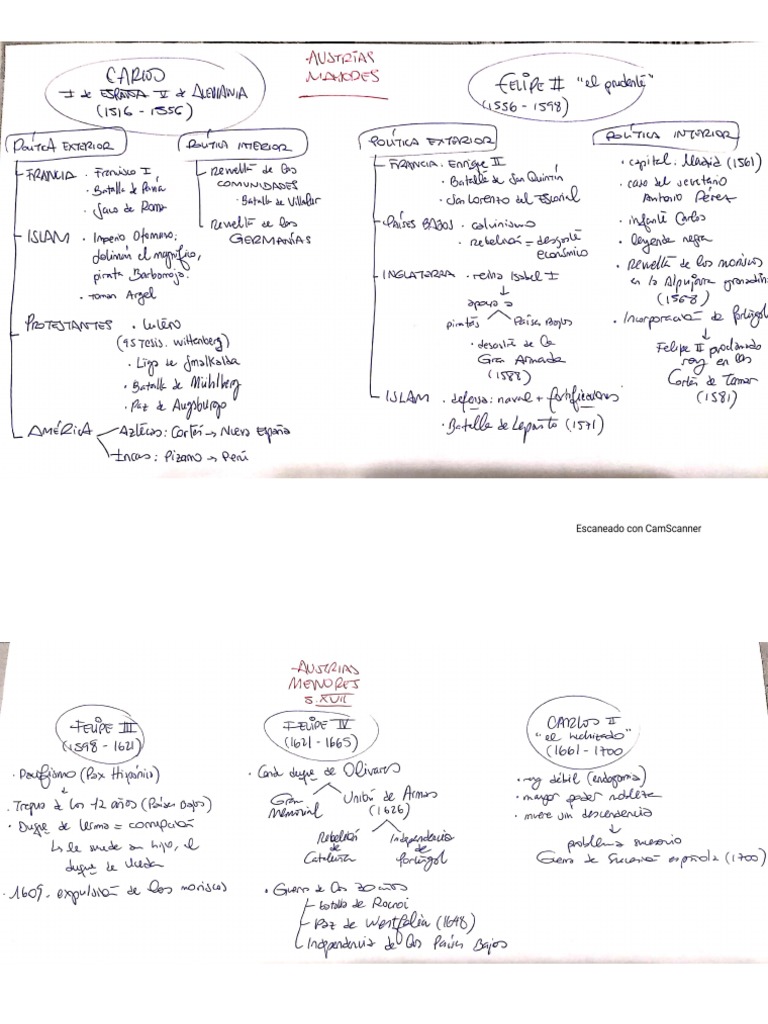 AUSTRIAS
MAYORES
CARLOS
I de ESPAÑA V de ALEMANIA
(1516 - 1556)
POLÍTICA EXTERIOR
FRANCIA · Francisco I
· Batalla de Pavía
· Saco de Roma
ISLAM · Imperio Otomano:
Solimán el magnífico,
pirata Barbarroja.
· toman Argel
PROTESTANTES · Lutero
(95 tesis. Wittenberg)
· Liga de Smalkalda
· Batalla de Mühlberg
· Paz de Augsburgo
AMÉRICA
Aztecas: Cortés → Nueva España
Incas: Pizarro → Perú
POLÍTICA INTERIOR
Revuelta de las
COMUNIDADES
· Batalla de Villalar
Revuelta de las
GERMANÍAS
FELIPE II "el prudente"
(1556 - 1598)
POLÍTICA EXTERIOR
FRANCIA · Enrique II
· Batalla de San Quintín
· San Lorenzo del Escorial
PAÍSES BAJOS · calvinismo
· rebelión = desgaste
económico
INGLATERRA · reina Isabel I
↓
apoyo a
piratas Países Bajos
· desastre de la
Gran Armada
(1588)
ISLAM · defensa: naval + fortificaciones
· Batalla de Lepanto (1571)
POLÍTICA INTERIOR
· capital: Madrid (1561)
· caso del secretario
Antonio Pérez
· infante Carlos
· leyenda negra
· Revuelta de los moriscos
en la Alpujarra granadina
(1568)
· Incorporación de Portugal
↓
Felipe II proclamado
rey en las
Cortes de Tomar
(1581)
Escaneado con CamScanner
AUSTRIAS
MENORES
S. XVII
FELIPE III
(1598 - 1621)
· Pacifismo (Pax Hispánica)
↓
· Tregua de los 12 años (Países Bajos)
· Duque de Lerma = corrupción
↳ le sucede su hijo, el
duque de Uceda
· 1609. expulsión de los moriscos
FELIPE IV
(1621 - 1665)
· Conde duque de Olivares
Gran
Memorial
Unión de Armas
(1626)
Rebelión
de
Cataluña
Independencia
de
Portugal
· Guerra de los 30 años
batalla de Rocroi
Paz de Westfalia (1648)
Independencia de los Países Bajos
CARLOS II
"el hechizado"
(1661 - 1700
· rey débil (endogamia)
· mayor poder nobleza
· muere sin descendencia
↓
problema sucesorio
Guerra de Sucesión española (1700)